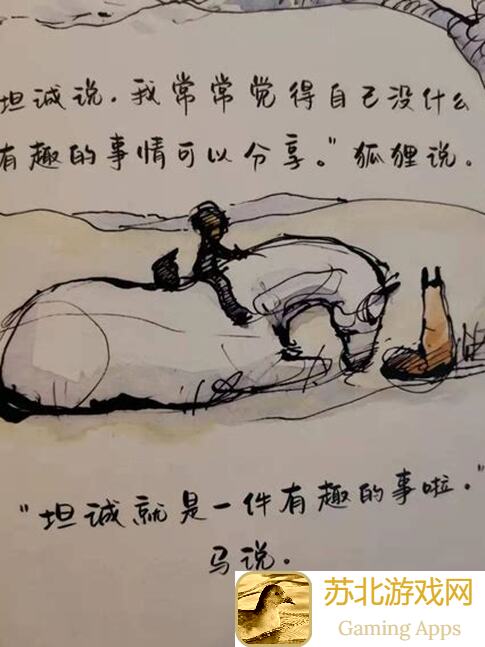 坦诚说，我常常觉得自己没什么
有趣的事情可以分享。”狐狸说。
“坦诚就是一件有趣的事啦。”
马说。
苏北游戏网
Gaming Apps